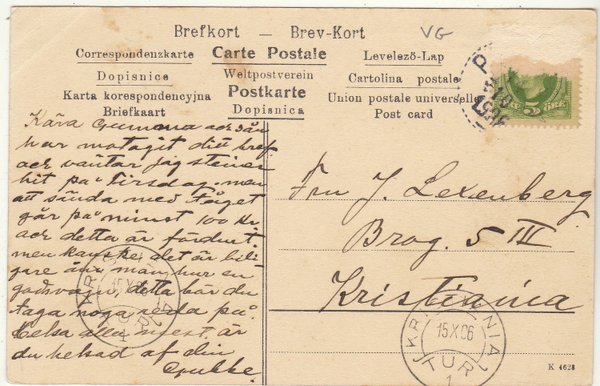 VG
Brefkort — Brev-Kort
Correspondenzkarte Carte Postale Levelező-Lap
Dopisnice Weltpostverein Cartolina postale
Karta korespondencyjna Postkarte Union postale universelle
Briefkaart Dopisnica Post card
5
Kära Gumma
har motagit ditt bref
och väntar jag
hit på Tirsdag men
att sända med Tåget
går på minst 100 Kr
och detta är
men kanske det är bil
man hur en
detta bör du
taga noga reda på.
Helsa alla mest är
du helsad af din
Gubbe.
Fru J. Lexenberg
Brog. 5 III
Kristiania
KR
15 X 06
KRISTIANIA
15 X 06
TUR
1
K 4628